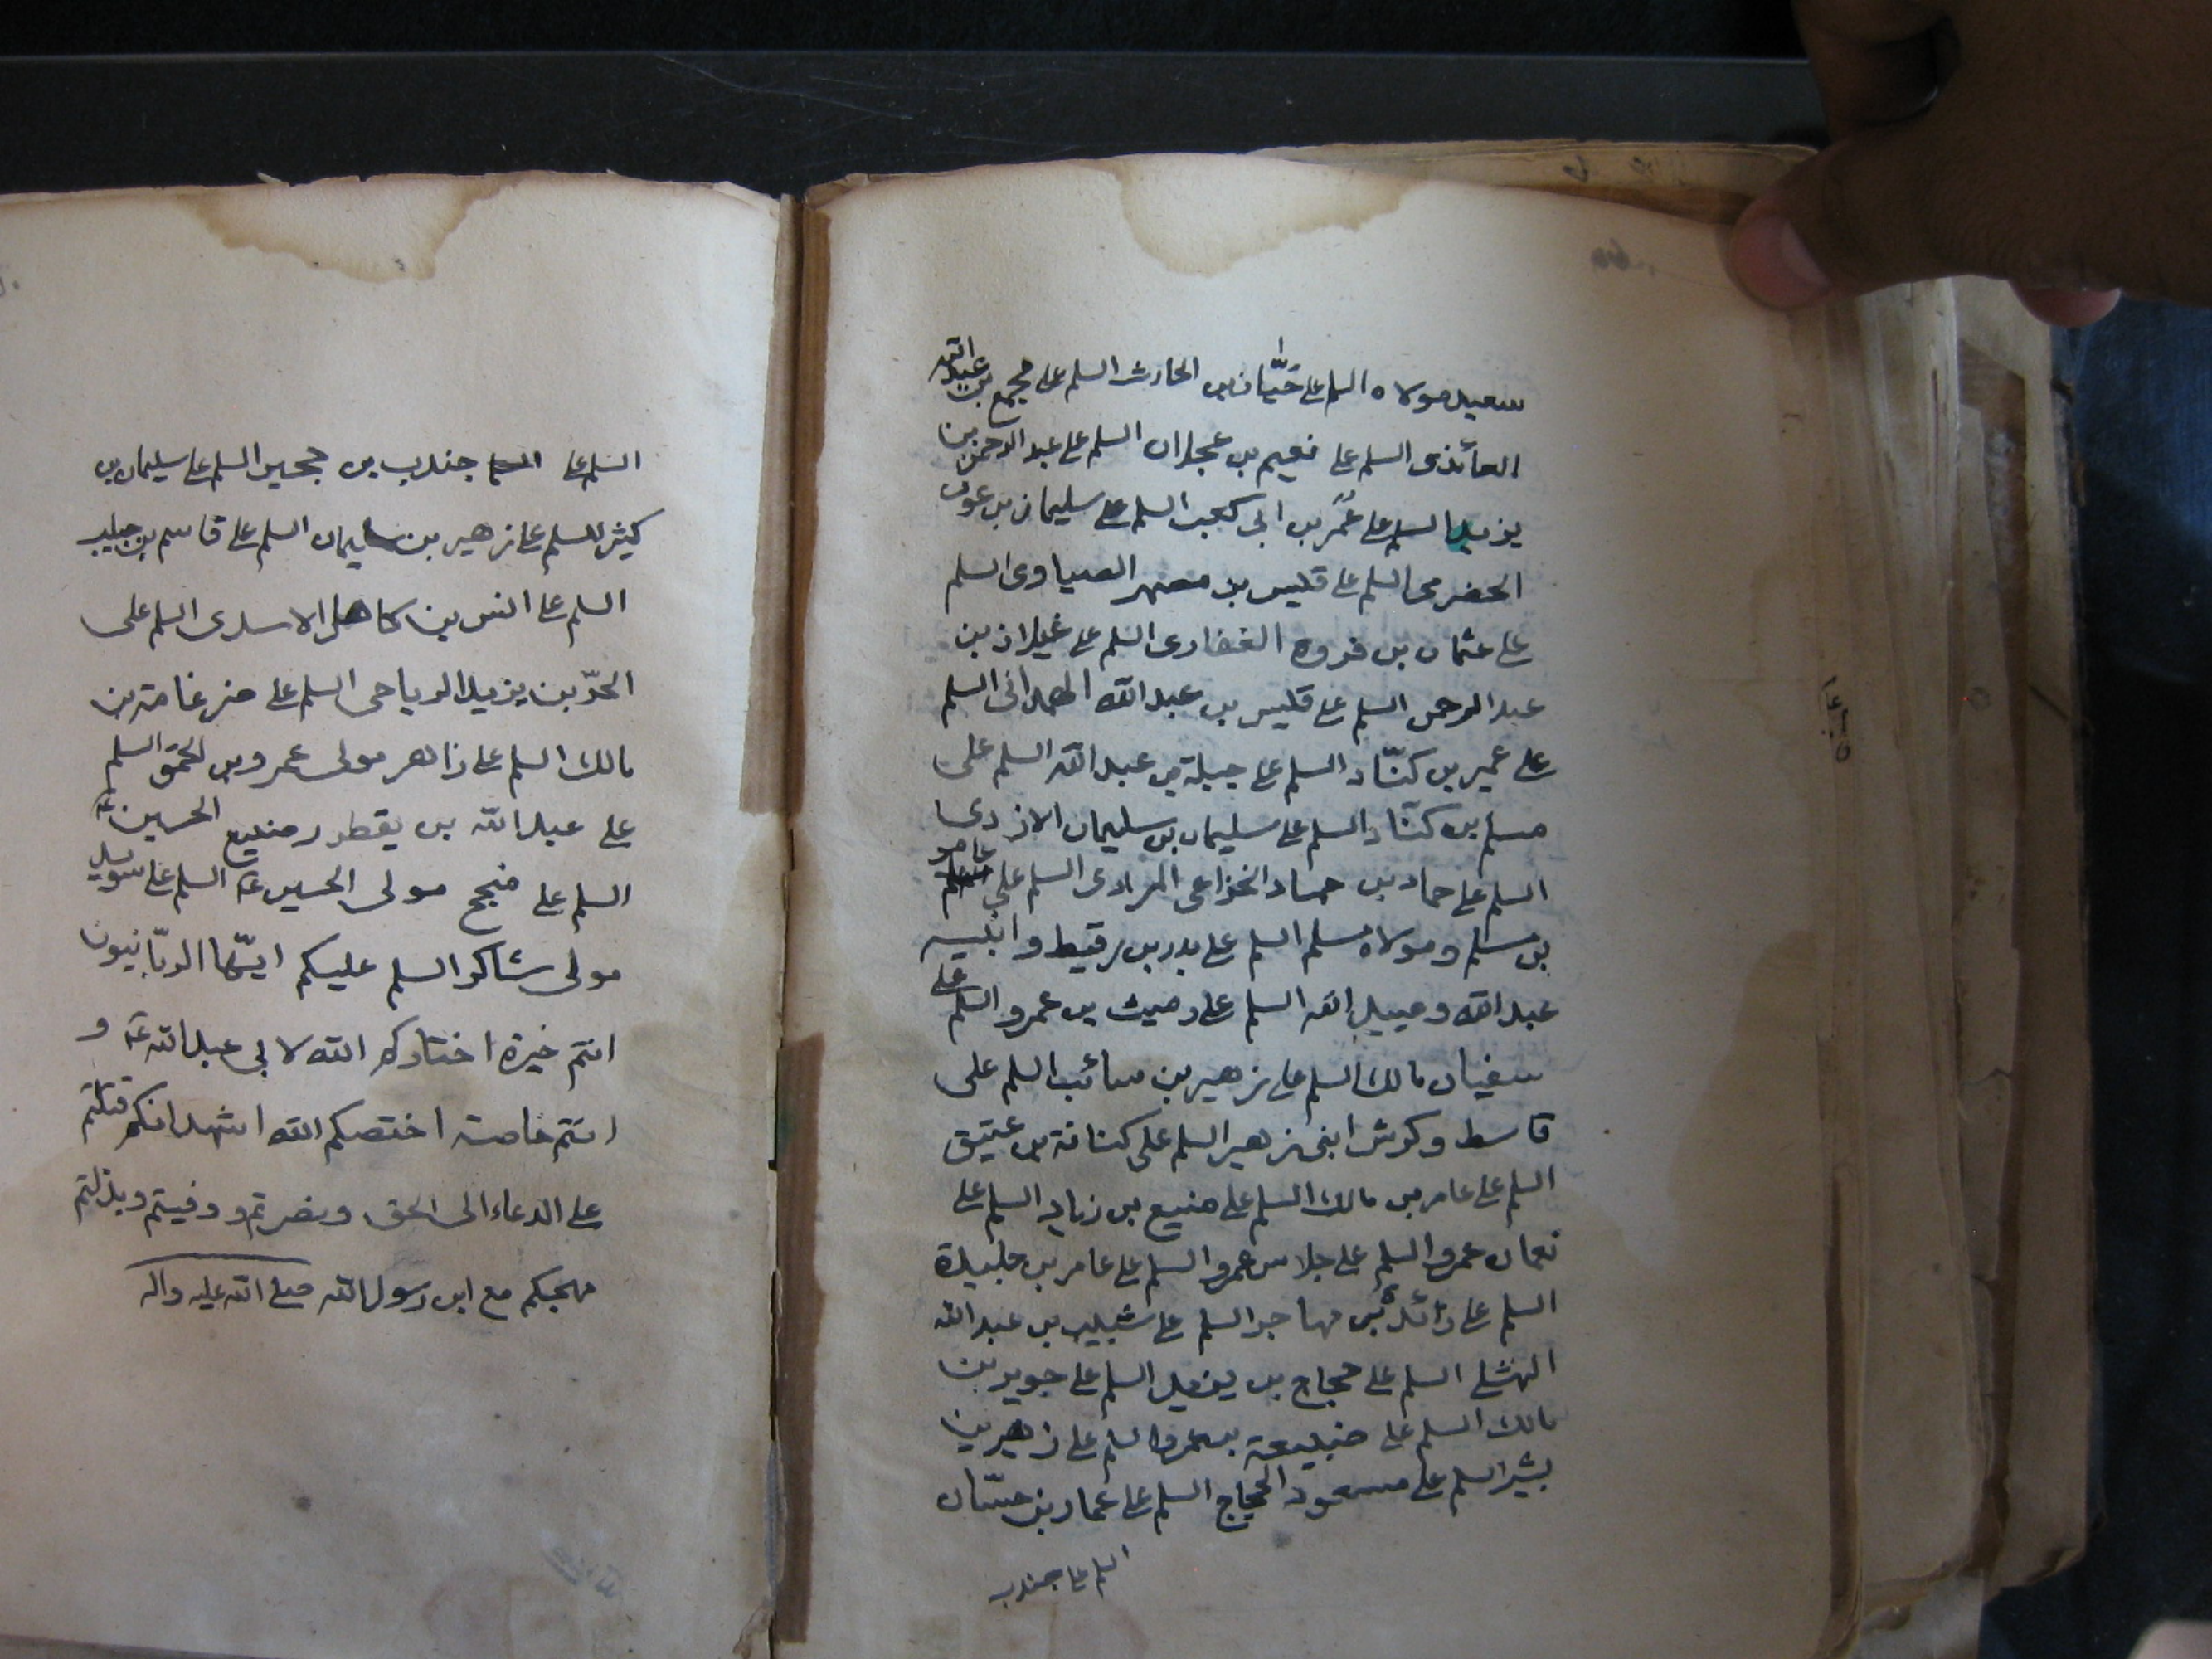 سعيد مولاه السلم على حيّان بن الحارث السلم على مجمع بن عبد الله
العائذى السلم على نعيم بن عجلان السلم على عبد الرحمن بن
يزيد السلم على عمر بن ابى كعب السلم على سليمان بن عون
الحضرمى السلم على قيس بن مصهر الصياوى السلم
على عثمان بن فروه الغفارى السلم على غيلان بن
عبد الرحمن السلم على قيس بن عبد الله الهمدانى السلم
على عمير بن كنّاد السلم على جبلة بن عبد الله السلم على
مسلم بن كنّاد السلم على سليمان بن سليمان الازدى
السلم على حماد بن حماد الخزاعى المرادى السلم على عامر
بن مسلم و مولاه مسلم السلم على بدر بن رقيط و ابنيه
عبد الله و عبيد الله السلم على رميث بن عمرو السلم على
سفيان مالك السلم على زهير بن سائب السلم على
قاسط و كرش ابنى زهير السلم على كنانة بن عتيق
السلم على عامر بن مالك السلم على منيع بن زياد السلم على
نعمان عمرو السلم على جلاس عمرو السلم على عامر بن جليدة
السلم على زائدة بن مهاجر السلم على شبيب بن عبد الله
النهشلى السلم على حجاج بن يزيد السلم على جوير بن
مالك السلم على ضبيعة بن عمرو السلم على زهير بن
بشير السلم على مسعود الحجاج السلم على عمار بن حسّان
السلم على جندب
السلم على جندب بن حجير السلم على سليمان بن
كثير السلم على زهير بن سليمان السلم على قاسم بن حبيب
السلم على انس بن كاهل الاسدى السلم على
الحرّ بن يزيد الرياحى السلم على ضرغامة بن
مالك السلم على زاهر مولى عمرو بن الحمق السلم
على عبد الله بن يقطر رضيع الحسين ع
السلم على منجح مولى الحسين ع السلم على سويد
مولى شاكر السلم عليكم ايّها الربّانيون
انتم خيرة اختاركم الله لابى عبد الله ع و
انتم خاصة اختصكم الله اشهد انكم قتلتم
على الدعاء الى الحق و نصرتم و وفيتم و بذلتم
مهجكم مع ابن رسول الله صلى الله عليه واله